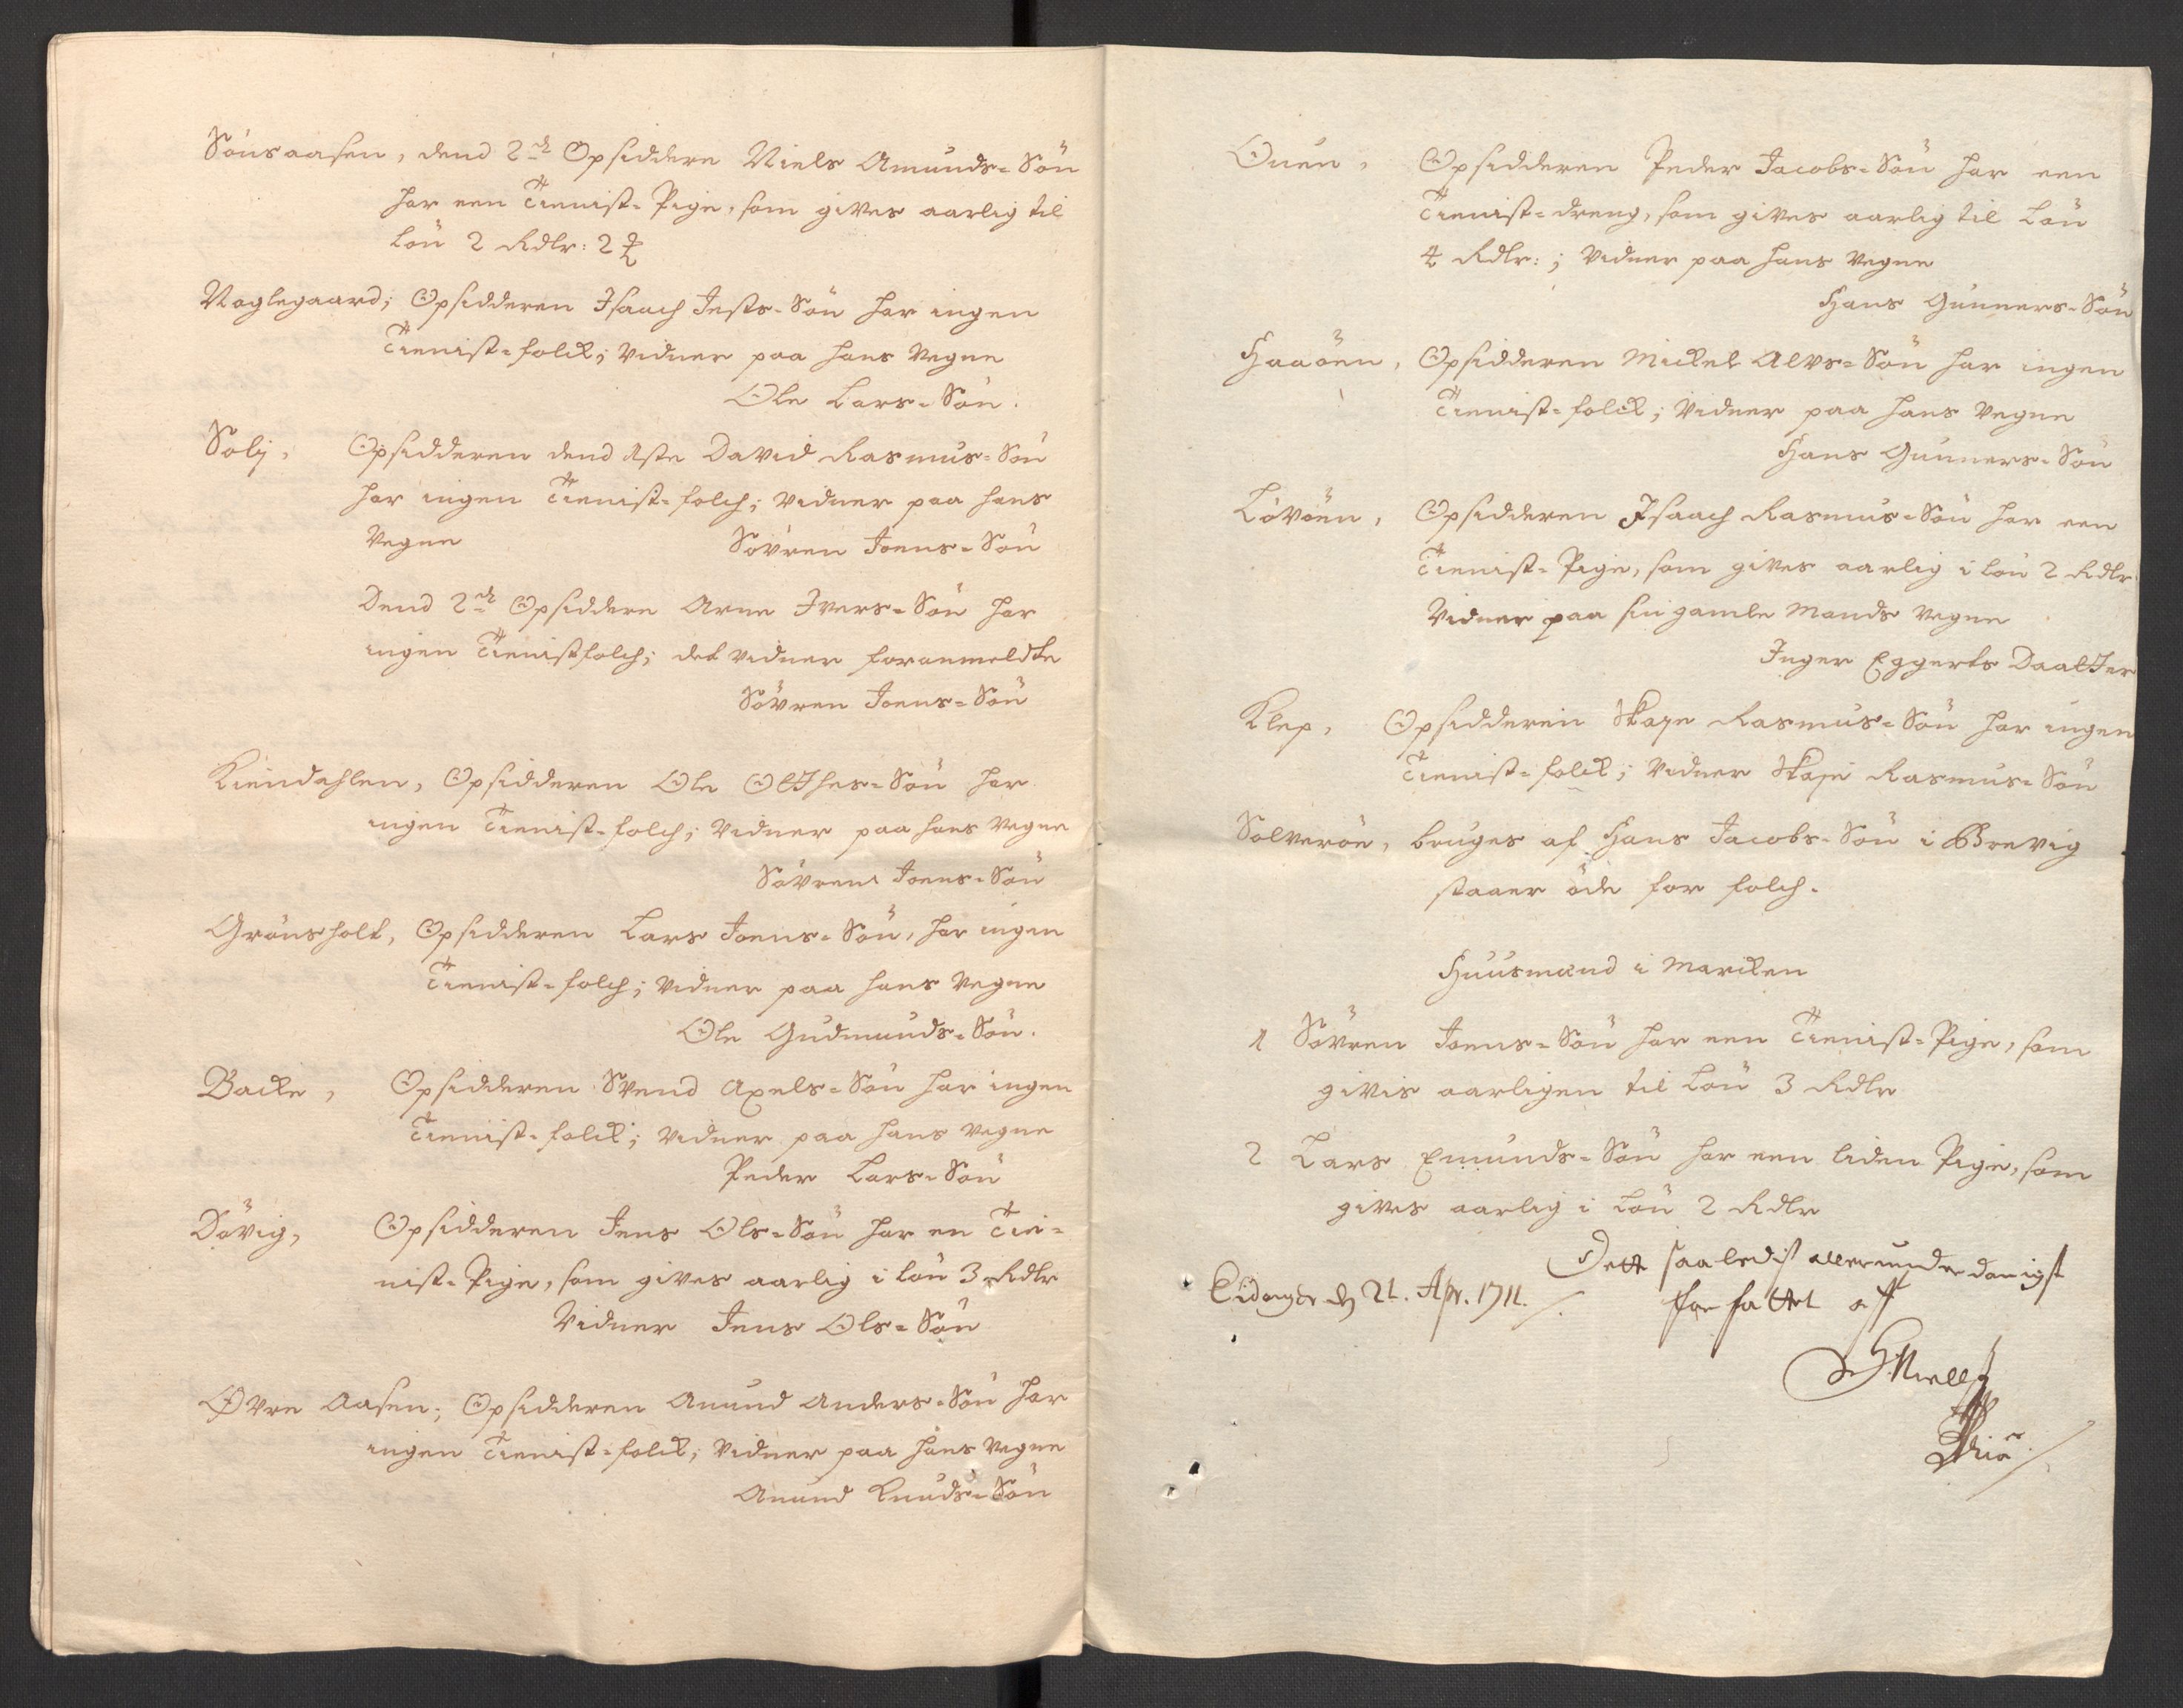 Sönsaasen, dend 2den Opsiddere Niels Amunds-Sön
har een Tienist-Pige, som gives aarlig til
Lön 2 Rdlr: 2
Naglegaard; Opsidderen Isaach Jests-Sön har ingen
Tienist-folck; Vidner paa hans Vegne
Ole Lars-Sön.
Solij, Opsidderen dend 1ste David Rasmus-Sön
har ingen Tienist-folch; Vidner paa hans
Vegne Sövren Joens-Sön
Dend 2den Opsiddere Arne Ivers-Sön har
ingen Tienistfolch; det vidner foranmeldte
Sövren Joens-Sön
Kiendahlen, Opsidderen Ole Olthes-Sön har
ingen Tienist-folch; Vidner paa hans Vegne
Sövren Joens-Sön
Grönsholt, Opsidderen Lars Joens-Sön, har ingen
Tienist-folch; Vidner paa hans Vegne
Ole Gudmunds-Sön.
Backe, Opsidderen Svend Axels-Sön har ingen
Tienist-folck; Vidner paa hans Vegne
Peder Lars-Sön
Dövig, Opsidderen Jens Ols-Sön har en Tie-
nist-Pige, som gives aarlig i lön 3 Rdlr
Vidner Jens Ols-Sön
Øvre Aasen; Opsidderen Anund Anders-Sön har
ingen Tienist-folck; Vidner paa hans Vegne
Anund Knuds-Sön
Ouen, Opsidderen Peder Jacobs-Sön har een
Tienist-dreng, som gives aarlig til Lön
4 Rdlr:; Vidner paa hans Vegne
Hans Gunners-Sön
Haaöen, Opsidderen Mickel Alvs-Sön har ingen
Tienist-folck; Vidner paa hans Vegne
Hans Gunners-Sön
Lövöen, Opsidderen Isaach Rasmus-Sön har een
Tienist-Pige, som gives aarlig i lön 2 Rdlr
Vidner paa sin gamle Mands Vegne
Inger Eggerts Daatter
Klep, Opsidderen Skaje Rasmus-Sön har ingen
Tienist-folck; Vidner Skaje Rasmus-Sön
Solveröe, bruges af Hans Jacobs-Sön i Brevig
staaer öde for folch.
Huusmænd i Marcken
1 Sövren Joens-Sön har een Tienist-Pige, som
givis aarligen til Lön 3 Rdlr
2 Lars Emunds-Sön har een liden Pige, som
gives aarlig i Lön 2 Rdlr
Dette saaledis allerunderdanigst
Eidanger d 21. Apr. 1711. forfattet aff